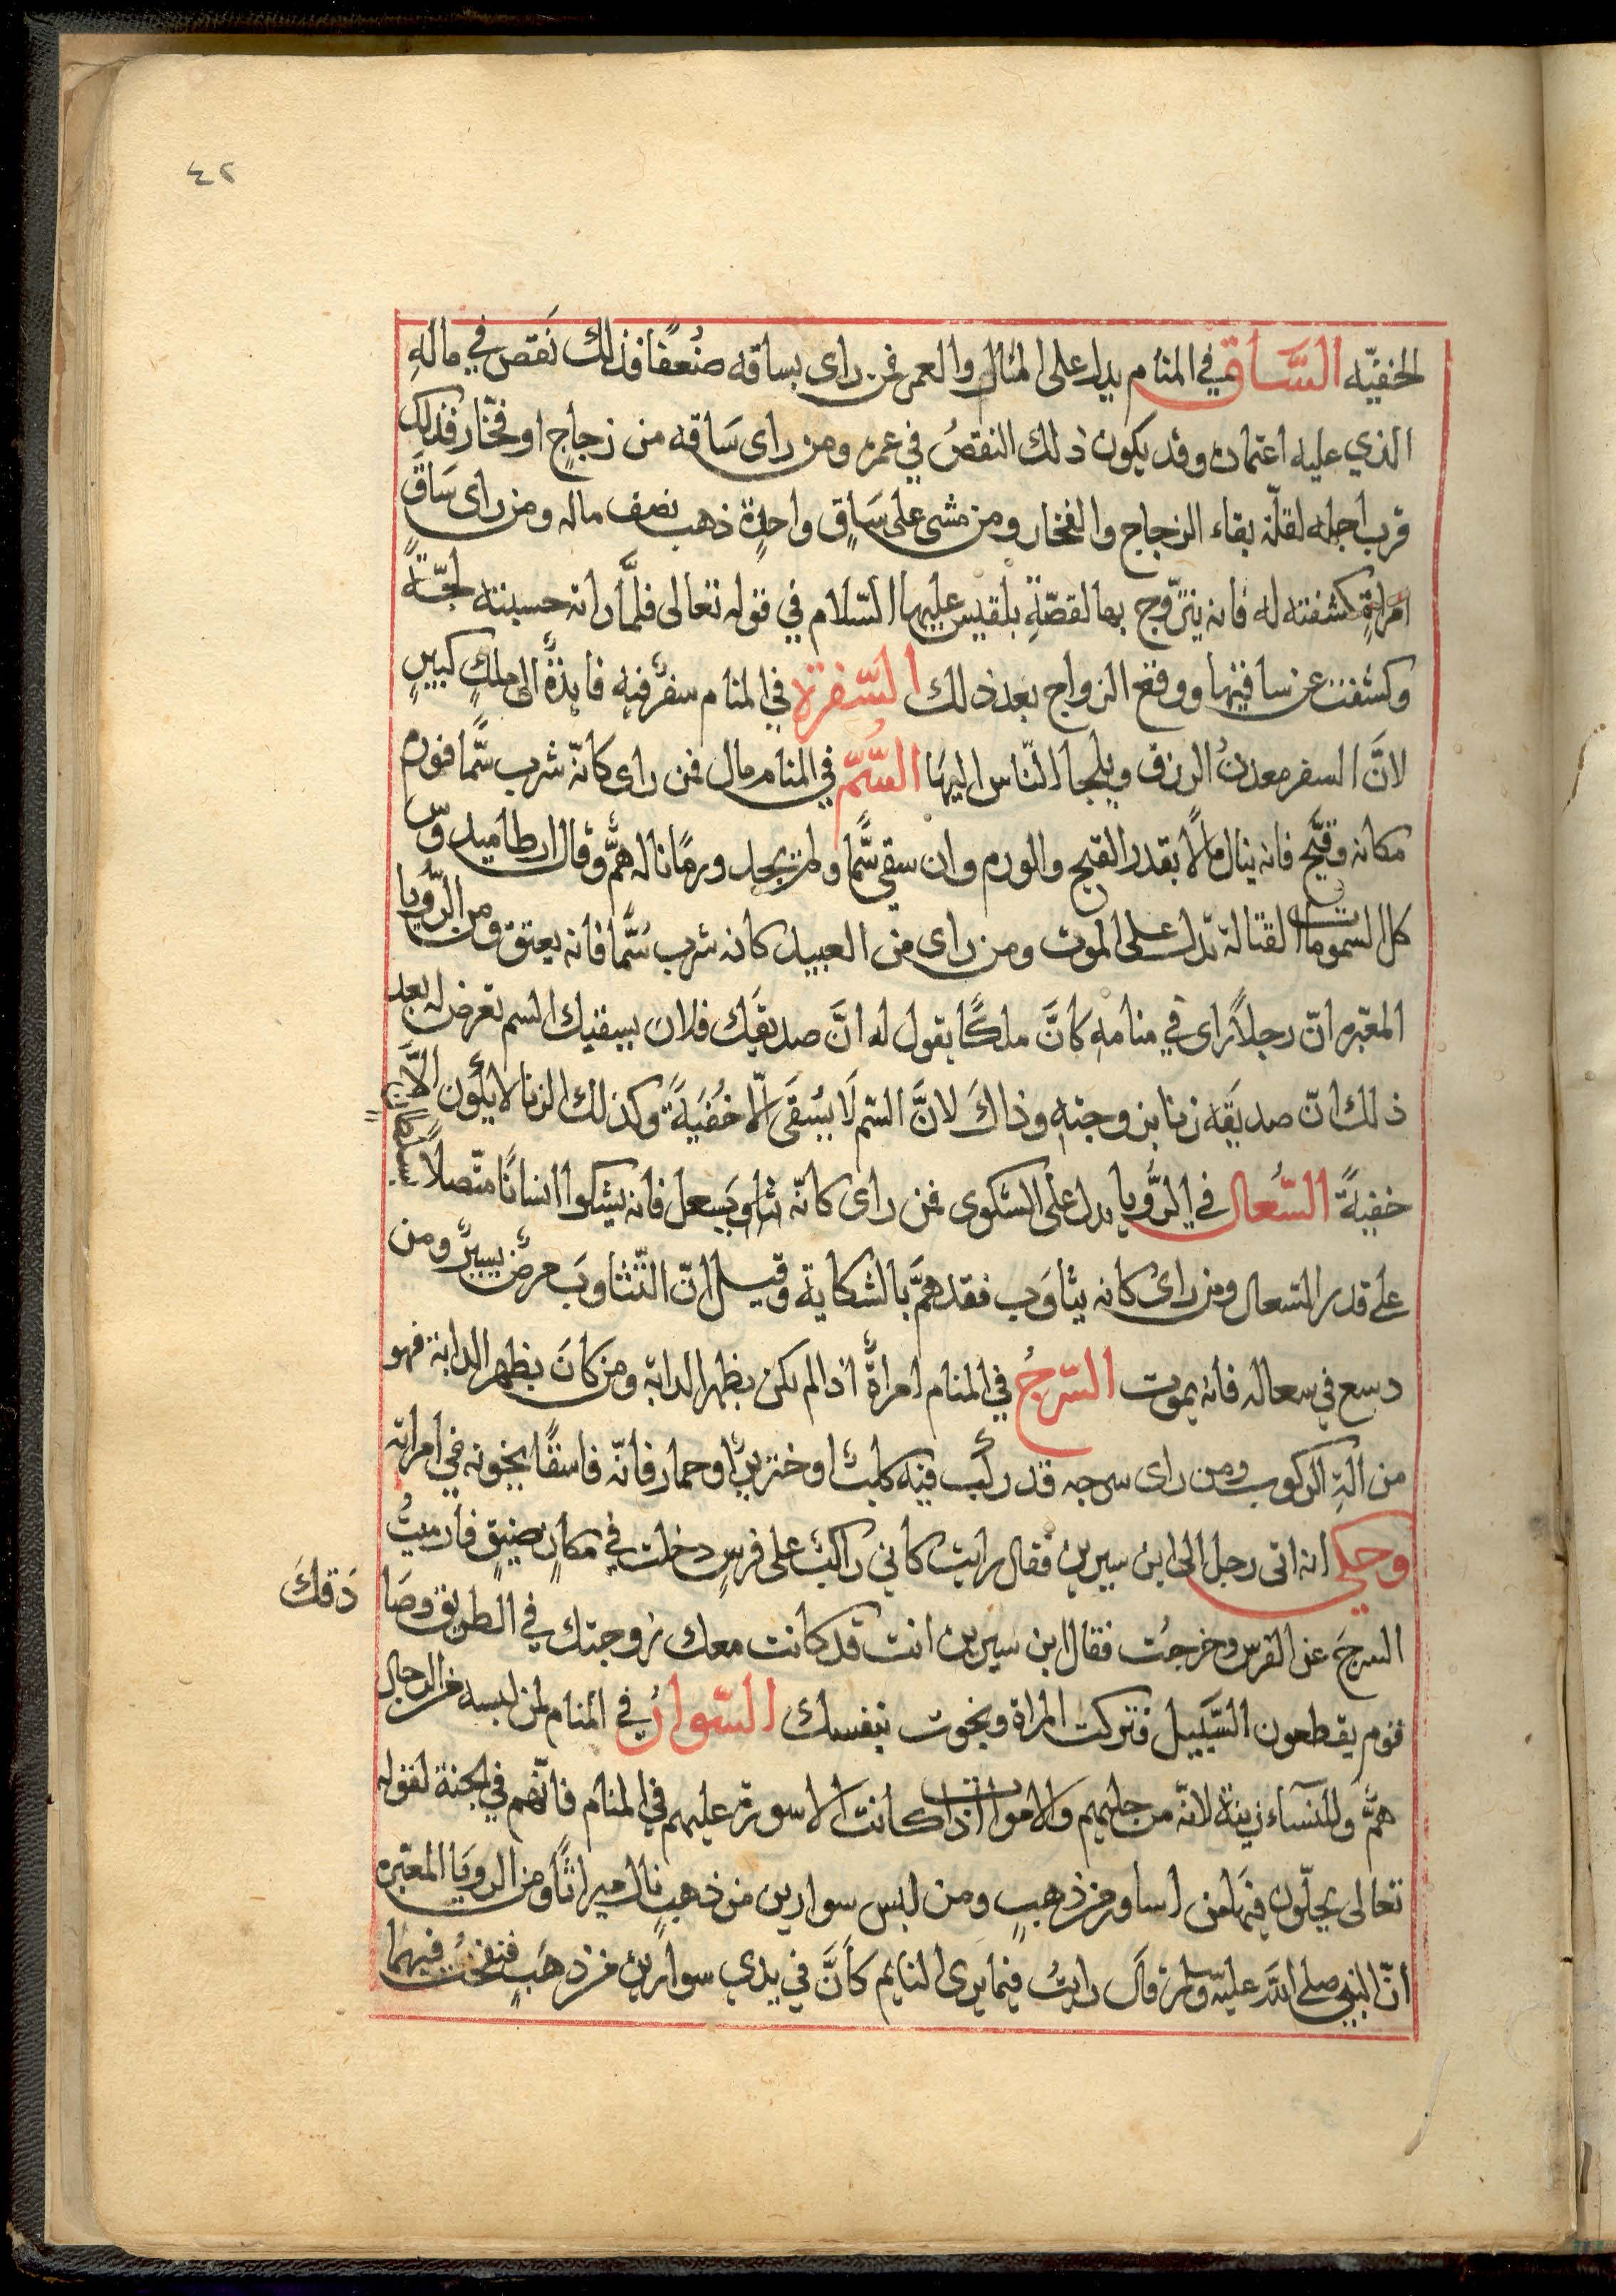 ٤٢
الخفيّه السَّاق في المنام يدل على المال والعمر فمن راى بساقه ضُعفًا فذلك نَقص في مالهِ
الذي عليه اعتماده وقد يكون ذلك النقصُ في عمره ومن راى سَاقه من زجاجٍ او فخّار فذلك
قرب اجله لقلّة بقاء الزجاج والفخار ومن مشى على سَاقٍ واحدٍة ذهب نصف ماله ومن راى سَاقَ
امراةٍ كشفته له فانه يتزّوج بها لقصّةِ بلقيس عليها السّلام في قوله تعالى فلمَّا راته حسبته لجّةً
وكشفت عن ساقيها ووقع الزواج بعد ذلك السّفرة في المنام سفرٌ فيه فايدةٌ الى ملكٍ كبيرٍ
لانَّ السفر معدنُ الرزق ويلجا النّاس اليهَا السُّمّ في المنام مال فمن راى كانّه شرب سمًّا فورم
مكانه وقيَّح فانه ينال مالًا بقدر القيح والورم وان سقي سمًّا ولم يجد ورمًا ناله همٌّ وقال ارطاميدوس
كل السمومات القتالة تدل على الموت ومن راى من العبيد كانه شرب سُمًّا فانه يعتق ومن الرّويا
المعبّره انّ رجلاً راى في منامهِ كانَّ ملكًا يقول له انَّ صديقَك فلان يسقيك السم تعرض له بعد
ذلك انّ صديقَه زنا بزوجتهِ وذاكَ لانَّ السّم لَا يسُقَى الّا خُفيَةً وكذلك الزنا لا يكون الّا
خفيةً السّعال في الرُّويا يدل على الشكوى فمن راى كانّه يسعل فانه يشكوا انسانًا متّصلاً
على قدر السّعال ومن راى كانه يثاوَب فقد همَّ بالشكاية وقيل انّ التّثاوبَ مرضٌ يسيرٌ ومن
دسع في سعاله فانه يموت السّرجُ في المنام امراةٌ اذا لم يكن بظهر الدابه ومن كانَ بظهر الدابة فهو
من الةِ الركوب ومن راى سرجه قد ركب فيه كلبٌ او خنزيرٌ او حمار فانّه فاسقًا يخونه في امراته
وحكي انه اتى رجل الى ابن سيرين فقال رايت كاني راكبٌ على فرسٍ دخلت في مكانٍ ضيقٍ فارميتُ
السرجَ عن الفرس وخرجتُ فقال ابن سيرين انت قد كانت معك زوجتك في الطريق وصَا دَفكَ
قوم يقطعون السَّبيل فتركت المراة ونجوت بنفسك السّوارُ في المنام لمن لبسه من الرجال
همٌّ وللنسآء زينة لانّه من حليهم والاموات اذا كانت الاسورة عليهم في المنام فانّهم في الجنة لقوله
تعالى يحلّون فيها من اساور من ذهبٍ ومن لبس سوارين من ذهبٍ نال ميراثًا ومن الرويَا المعبّره
انّ النبي صلى الله عليه وسلم قَال رايتُ فيما يرى النايم كَأنَّ في يدي سوارين من ذهَبٍ فنفختُ فيهما